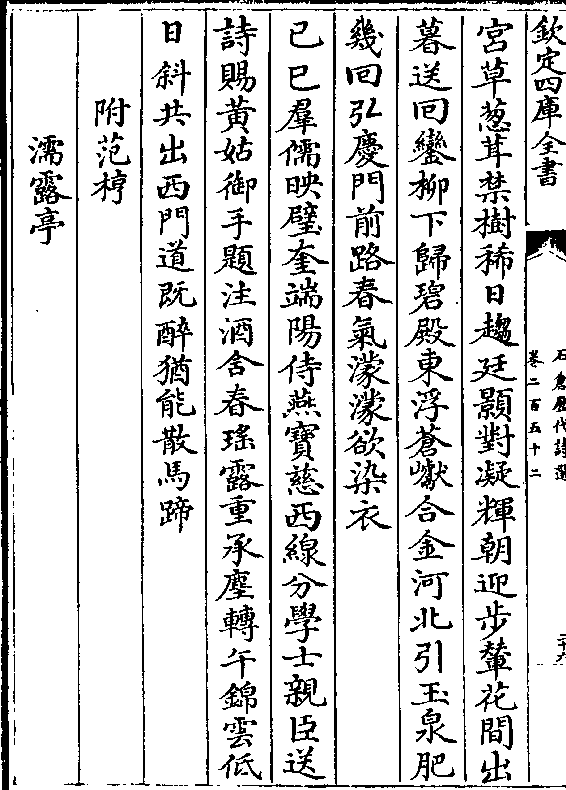 欽定四庫全書
石倉歷代詩選
卷二百五十二
二十六
宮草葱茸禁樹稀日趨廷顥對凝輝朝迎步輦花間出
暮送回鑾柳下歸碧殿東浮蒼巘合金河北引玉泉肥
幾回弘慶門前路春氣濛濛欲染衣
已巳羣儒映璧奎端陽侍燕寶慈西線分學士親臣送
詩賜黃姑御手題注酒含春瑤露重承塵轉午錦雲低
日斜共出西門道既醉猶能散馬蹄
附范梈
濡露亭